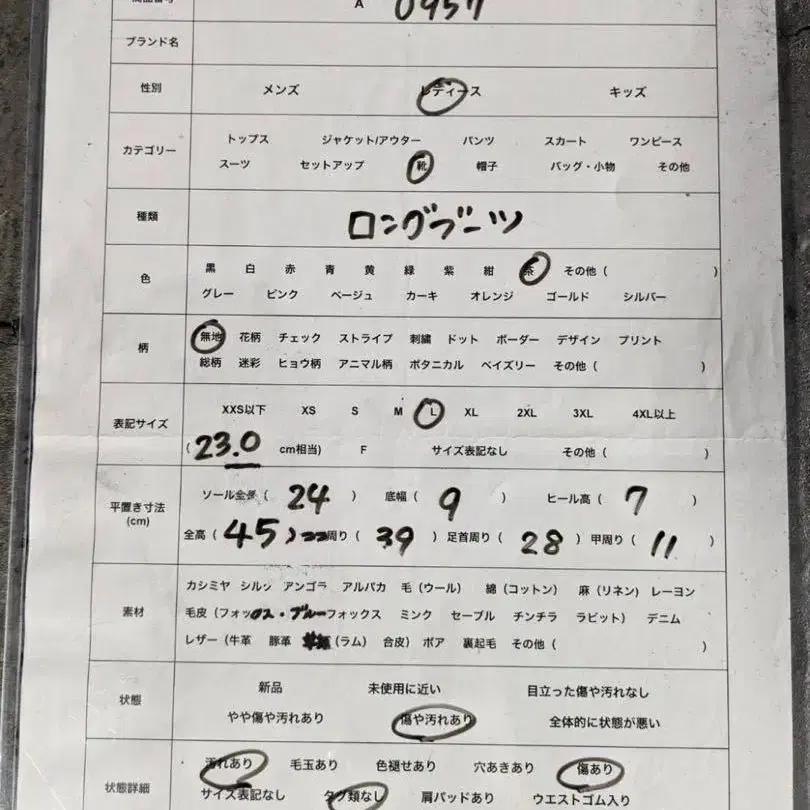 商品番号 A 0957
ブランド名
性別 メンズ レディース キッズ
トップス ジャケット/アウター パンツ スカート ワンピース
カテゴリー
スーツ セットアップ 靴 帽子 バッグ・小物 その他
種類 ロングブーツ
黒 白 赤 青 黄 緑 紫 紺 茶 その他（ ）
色
グレー ピンク ベージュ カーキ オレンジ ゴールド シルバー
無地 花柄 チェック ストライプ 刺繍 ドット ボーダー デザイン プリント
柄
総柄 迷彩 ヒョウ柄 アニマル柄 ボタニカル ペイズリー その他（ ）
XXS以下 XS S M L XL 2XL 3XL 4XL以上
表記サイズ
（ 23.0 cm相当) F サイズ表記なし その他（ ）
ソール全長（ 24 ） 底幅（ 9 ） ヒール高（ 7 ）
平置き寸法
(cm)
全高（ 45 ） 周り（ 39 ）足首周り（ 28 ）甲周り（ 11 ）
カシミヤ シルク アンゴラ アルパカ 毛（ウール） 綿（コットン） 麻（リネン） レーヨン
素材
毛皮（フォックス・ブルーフォックス ミンク セーブル チンチラ ラビット） デニム
レザー（牛革 豚革 （ラム） 合皮） ボア 裏起毛 その他（ ）
新品 未使用に近い 目立った傷や汚れなし
状態
やや傷や汚れあり 傷や汚れあり 全体的に状態が悪い
汚れあり 毛玉あり 色褪せあり 穴あきあり 傷あり
状態詳細
サイズ表記なし タグ類なし 肩パッドあり ウエストゴム入り